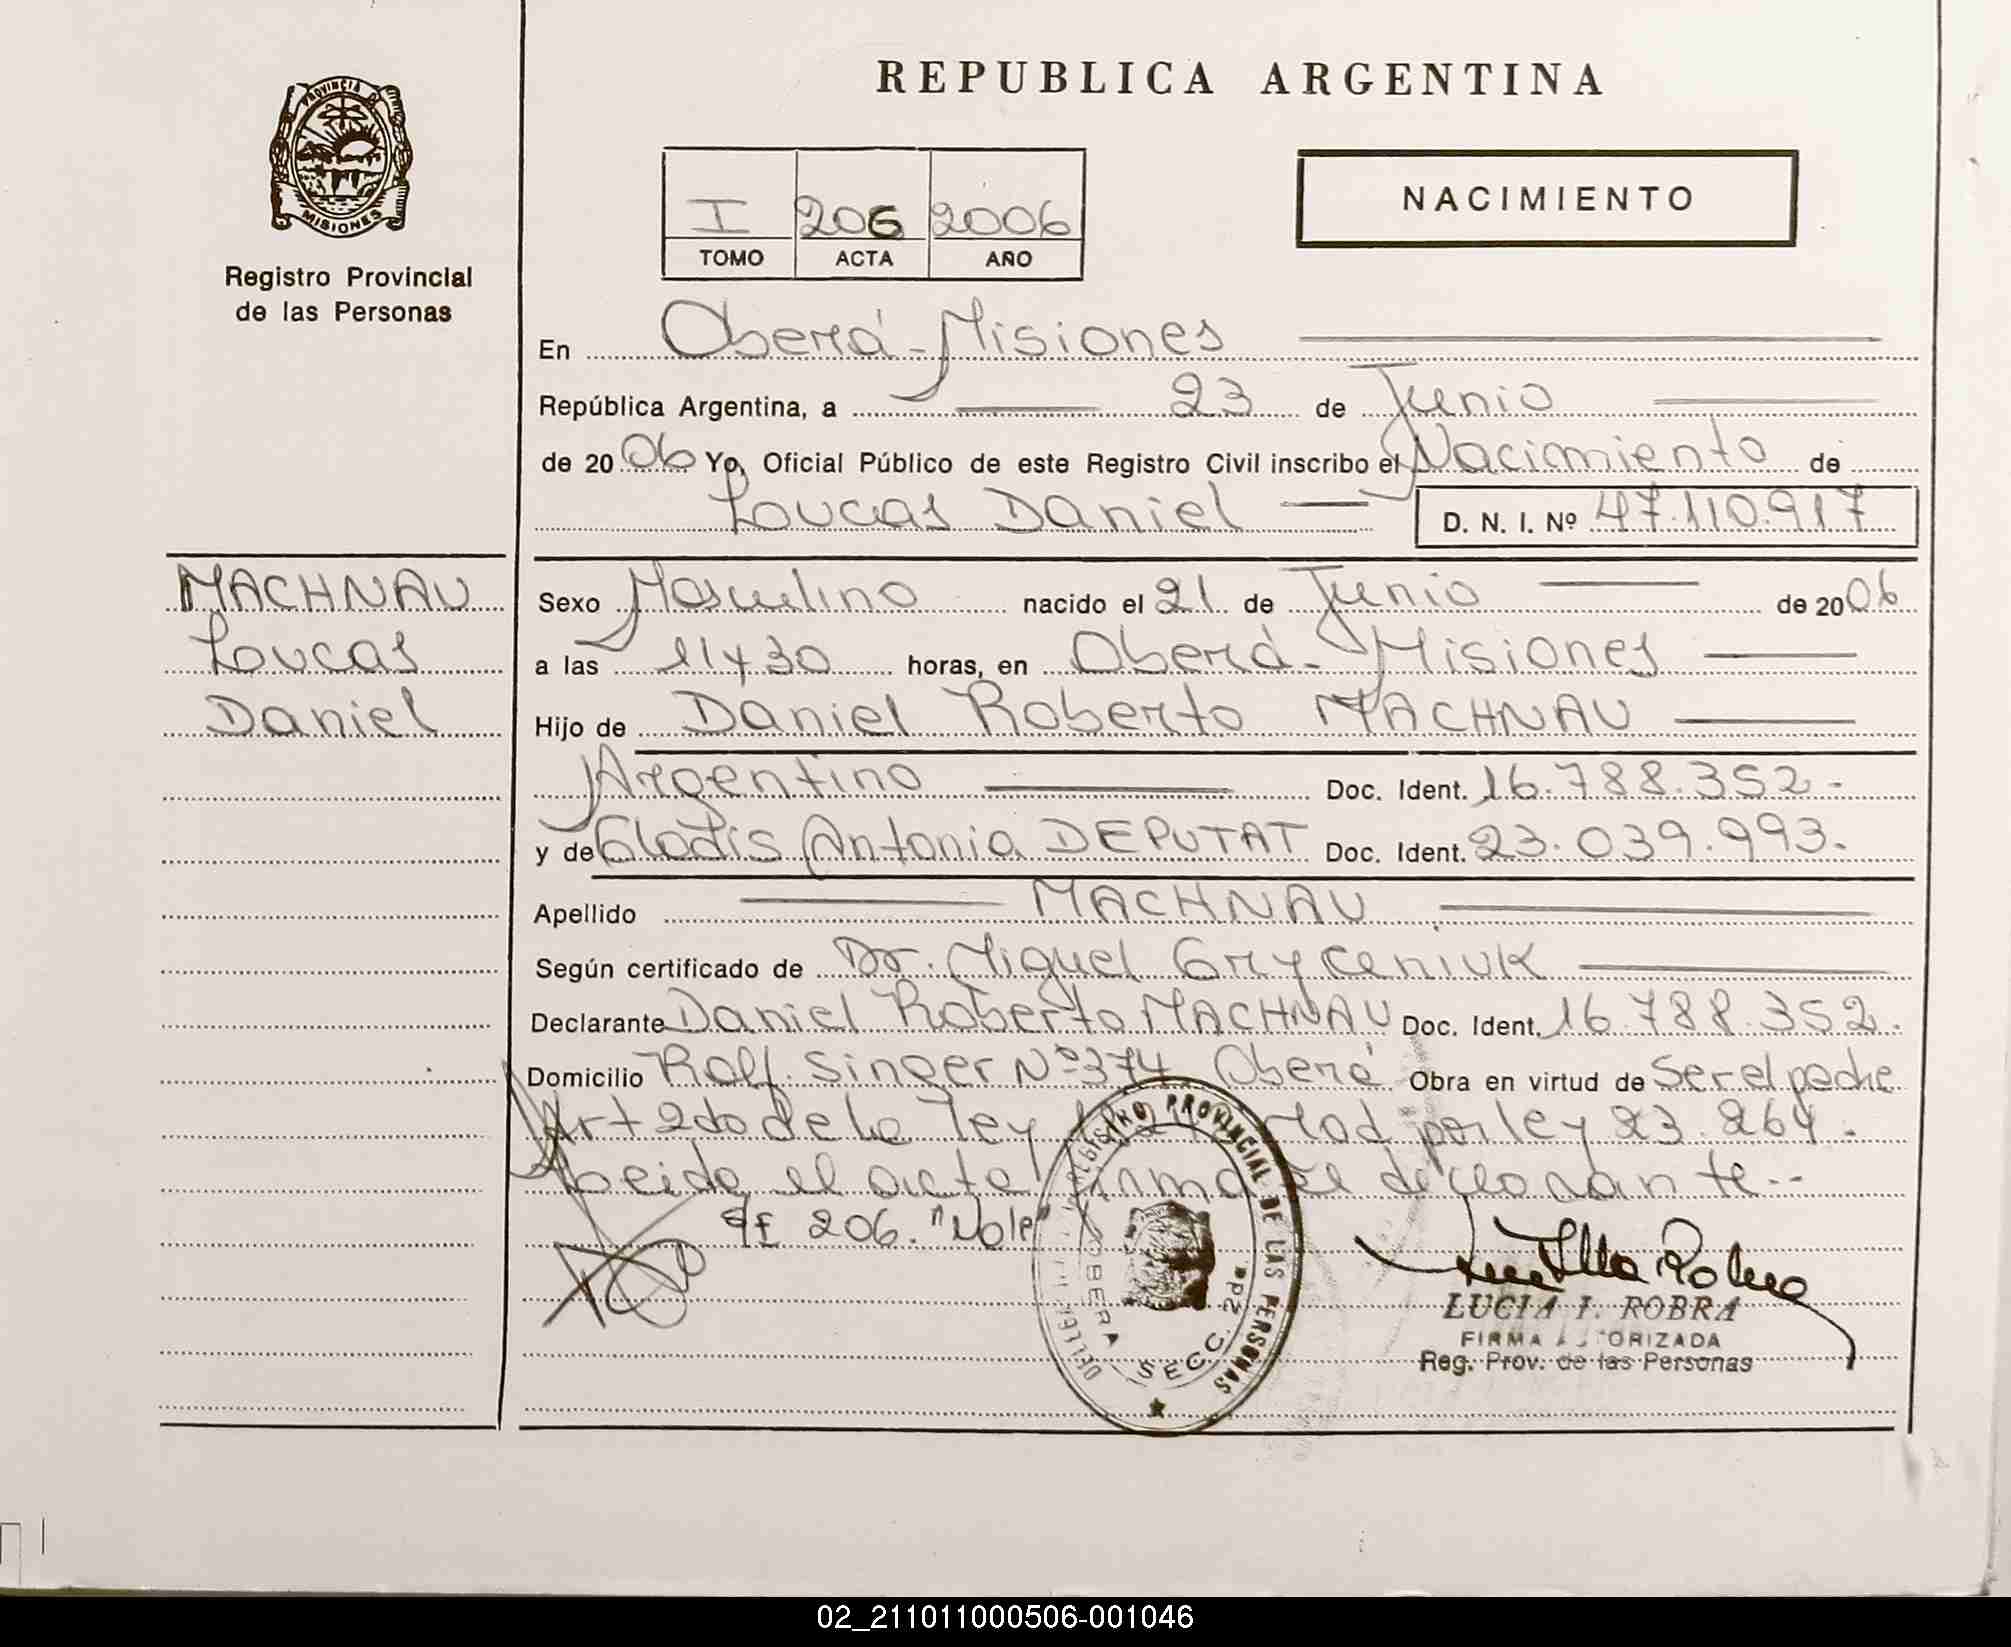 REPUBLICA ARGENTINA
PROVINCIA DE MISIONES
Registro Provincial
de las Personas
I 206 2006
TOMO ACTA AÑO
NACIMIENTO
En Oberá - Misiones
República Argentina, a 23 de Junio
de 2006 Yo, Oficial Público de este Registro Civil inscribo el Nacimiento de
Loucas Daniel D. N. I. Nº 47.110.917
MACHNAU
Loucas
Daniel
Sexo Masculino nacido el 21 de Junio de 2006
a las 11 y 30 horas, en Oberá - Misiones
Hijo de Daniel Roberto MACHNAU
Argentino Doc. Ident. 16.788.352.-
y de Glodis Antonia DEPUTAT Doc. Ident. 23.039.993.
Apellido MACHNAU
Según certificado de Dr. Miguel Gryceniuk
Declarante Daniel Roberto MACHNAU Doc. Ident. 16.788.352.
Domicilio Rolf. Singer Nº 374 Oberá Obra en virtud de Ser el padre
Art 2do de la Ley por ley 23.264.
Leida el acta firma el declarante.-
206. "Vale"
REGISTRO PROVINCIAL DE LAS PERSONAS
OBERA
SECC. 2da.
LUCIA I. ROBRA
FIRMA AUTORIZADA
Reg. Prov. de las Personas
02_211011000506-001046